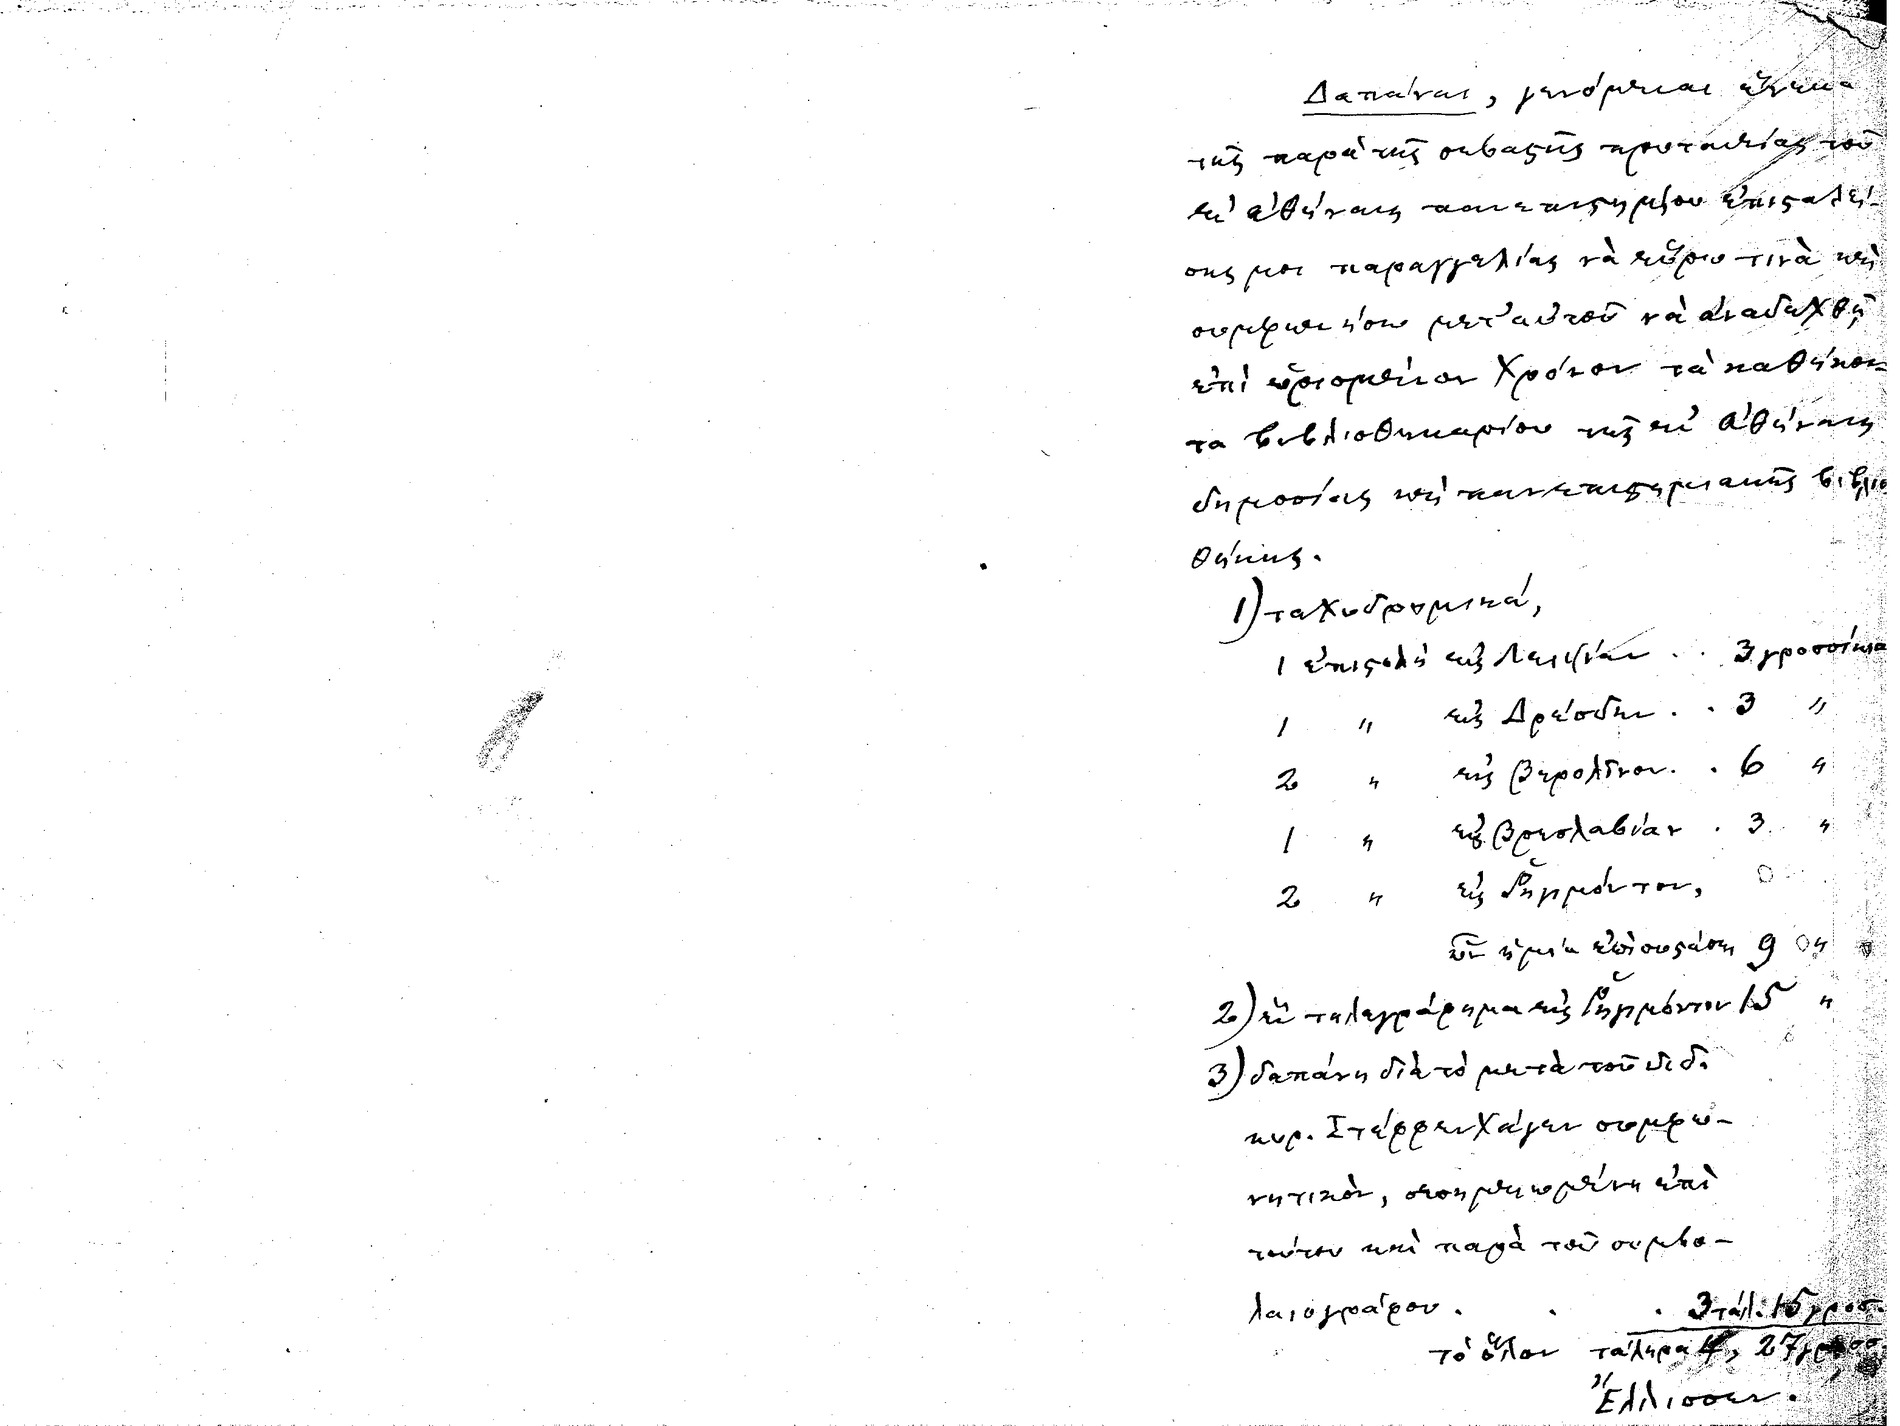 Δαπάναι, γενόμεναι ἕνεκα
τῆς παρὰ τῆς σεβαστῆς πρυτανείας τοῦ
ἐν Ἀθήναις πανεπιστημίου ἐπισταλεί-
σης μοι παραγγελίας νὰ εὕρω τινὰ καὶ
συμφωνήσω μετ' αὐτοῦ νὰ ἀναδεχθῇ
ἐπὶ ὡρισμένον χρόνον τὰ καθήκον-
τα βιβλιοθηκαρίου τῆς ἐν Ἀθήναις
δημοσίας καὶ πανεπιστημιακῆς βιβλιο
θήκης.
1) ταχυδρομικά,
1 ἐπιστολὴ εἰς Λειψίαν . . 3 γροσσίκια
1 " εἰς Δρέσδην . . 3 "
2 " εἰς Βερολῖνον . . 6 "
1 " εἰς Βρεσλαβίαν . 3 "
2 " εἰς
ὧν ἡ μία 9 "
2) ἓν τηλεγράφημα εἰς 15 "
3) δαπάνη διὰ τὸ μετὰ τοῦ διδ.
κυρ. Στέφφενχάγεν συμφω-
νητικὸν, σεσημειωμένη ἐπὶ
τούτου καὶ παρὰ τοῦ συμβο-
λαιογράφου . . . 3 τάλ. 15 γροσ.
τὸ ὅλον τάληρα 4, 27 γροσσ.
Ἔλλισσεν.